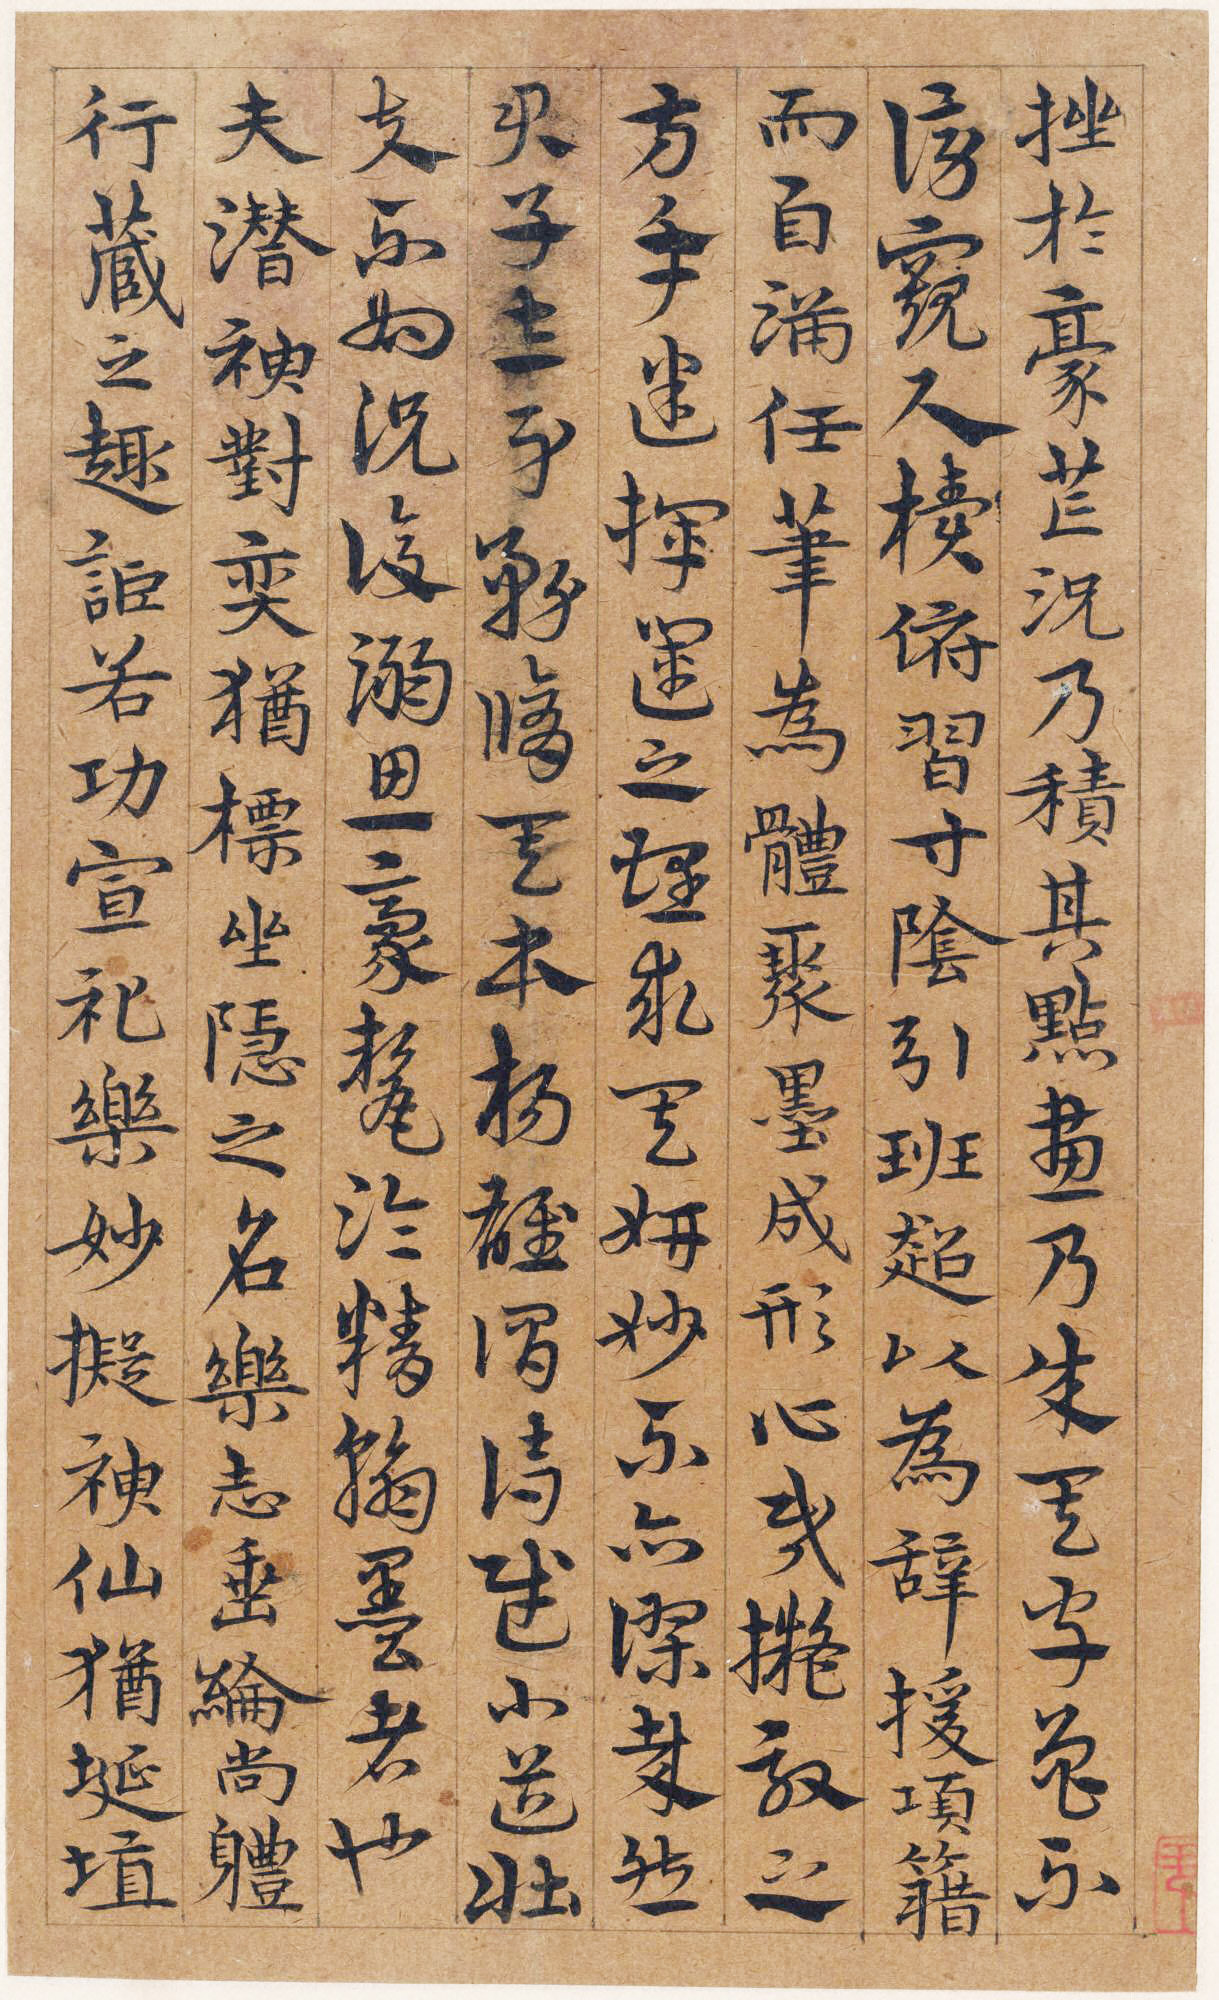 挫於豪芒況乃積其點畫乃成其字曾不
傍窺尺牘俯習寸陰引班超以為辭援項籍
而自滿任筆為體聚墨成形心昏擬效之
方手迷揮運之理求其妍妙不亦謬哉然
君子立身務脩其本楊雄謂詩賦小道壯
夫不為況復溺思豪氂淪精翰墨者也
夫潛神對奕猶標坐隱之名樂志垂綸尚體
行藏之趣詎若功宣祀樂妙擬神仙猶埏埴